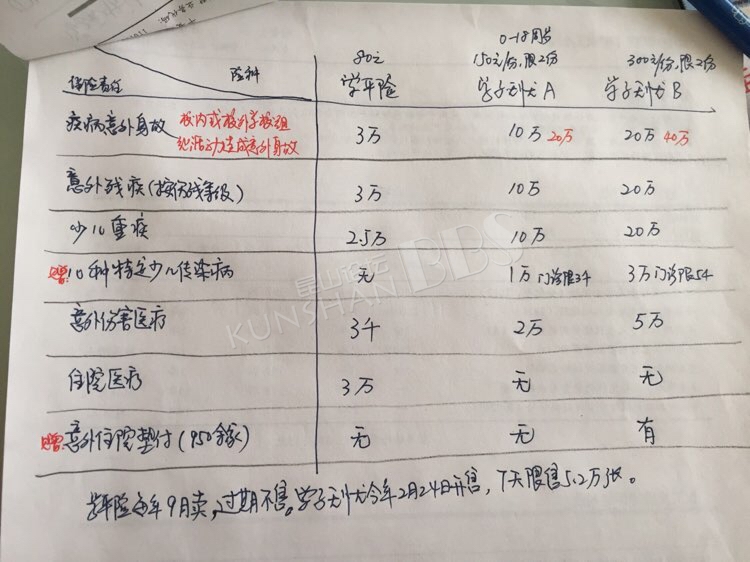 0-18周岁
80元 150元/份.限2份 300元/份.限2份
保险责任 险种 学平险 学子无忧A 学子无忧B
疾病意外身故 校内或校外学校组 3万 10万 20万 20万 40万
织活动造成意外身故
意外残疾(按伤残等级) 3万 10万 20万
少儿重疾 2.5万 10万 20万
赠:10种特定少儿传染病 无 1万门诊限3千 3万门诊限5千
意外伤害医疗 3千 2万 5万
住院医疗 3万 无 无
赠:意外住院垫付(950余家) 无 无 有
学平险每年9月卖,过期不售。学子无忧今年2月24日开售,7天限售5.2万张。
昆山论坛 BBS
KUNSHAN